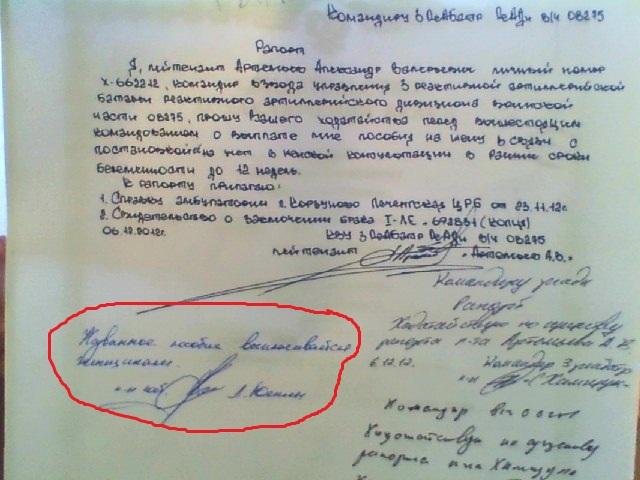 Командиру 3 РеАБатр РеАДн в/ч 08275
Рапорт
Я, лейтенант Артемьев Александр Валерьевич личный номер
Х-662212, командир взвода управления 3 реактивной артиллерийской
батареи реактивного артиллерийского дивизиона войсковой
части 08275, прошу Вашего ходатайства перед вышестоящим
командованием о выплате мне пособия на жену в связи с
постановкой на учет в женской консультации в ранние сроки
беременности до 12 недель.
К рапорту прилагаю:
1. Справку амбулатории г. Корзуново Печенгская ЦРБ от 23.11.12г.
2. Свидетельство о заключении брака I-ЛЕ (копия)
06.12.2012г. КВУ 3 РеАБатр РеАДн в/ч 08275
лейтенант Артемьев А.В.
Командиру реадн
Рапорт
Ходатайствую по существу
рапорта л-та Артемьева А.В.
6.12.12. Командир 3 реабатр
Названное пособие выплачивается
женщинам.
Командир в/ч 08275
Ходатайствую по существу
рапорта